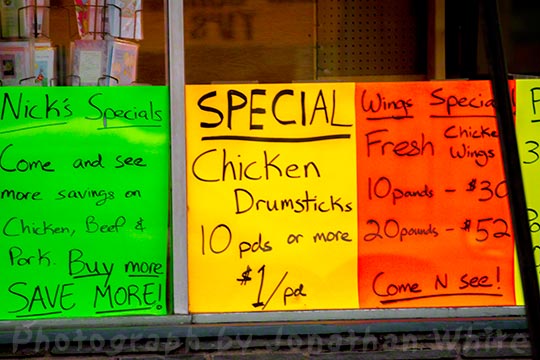 Nick's Specials
Come and see
more savings on
Chicken, Beef &
Pork. Buy more
SAVE MORE!
SPECIAL
Chicken
Drumsticks
10 pds or more
$1/pd
Wings Special!
Fresh Chicken
Wings
10 pounds - $30
20 pounds - $52
Come N See!
3
Photograph by Jonathan White